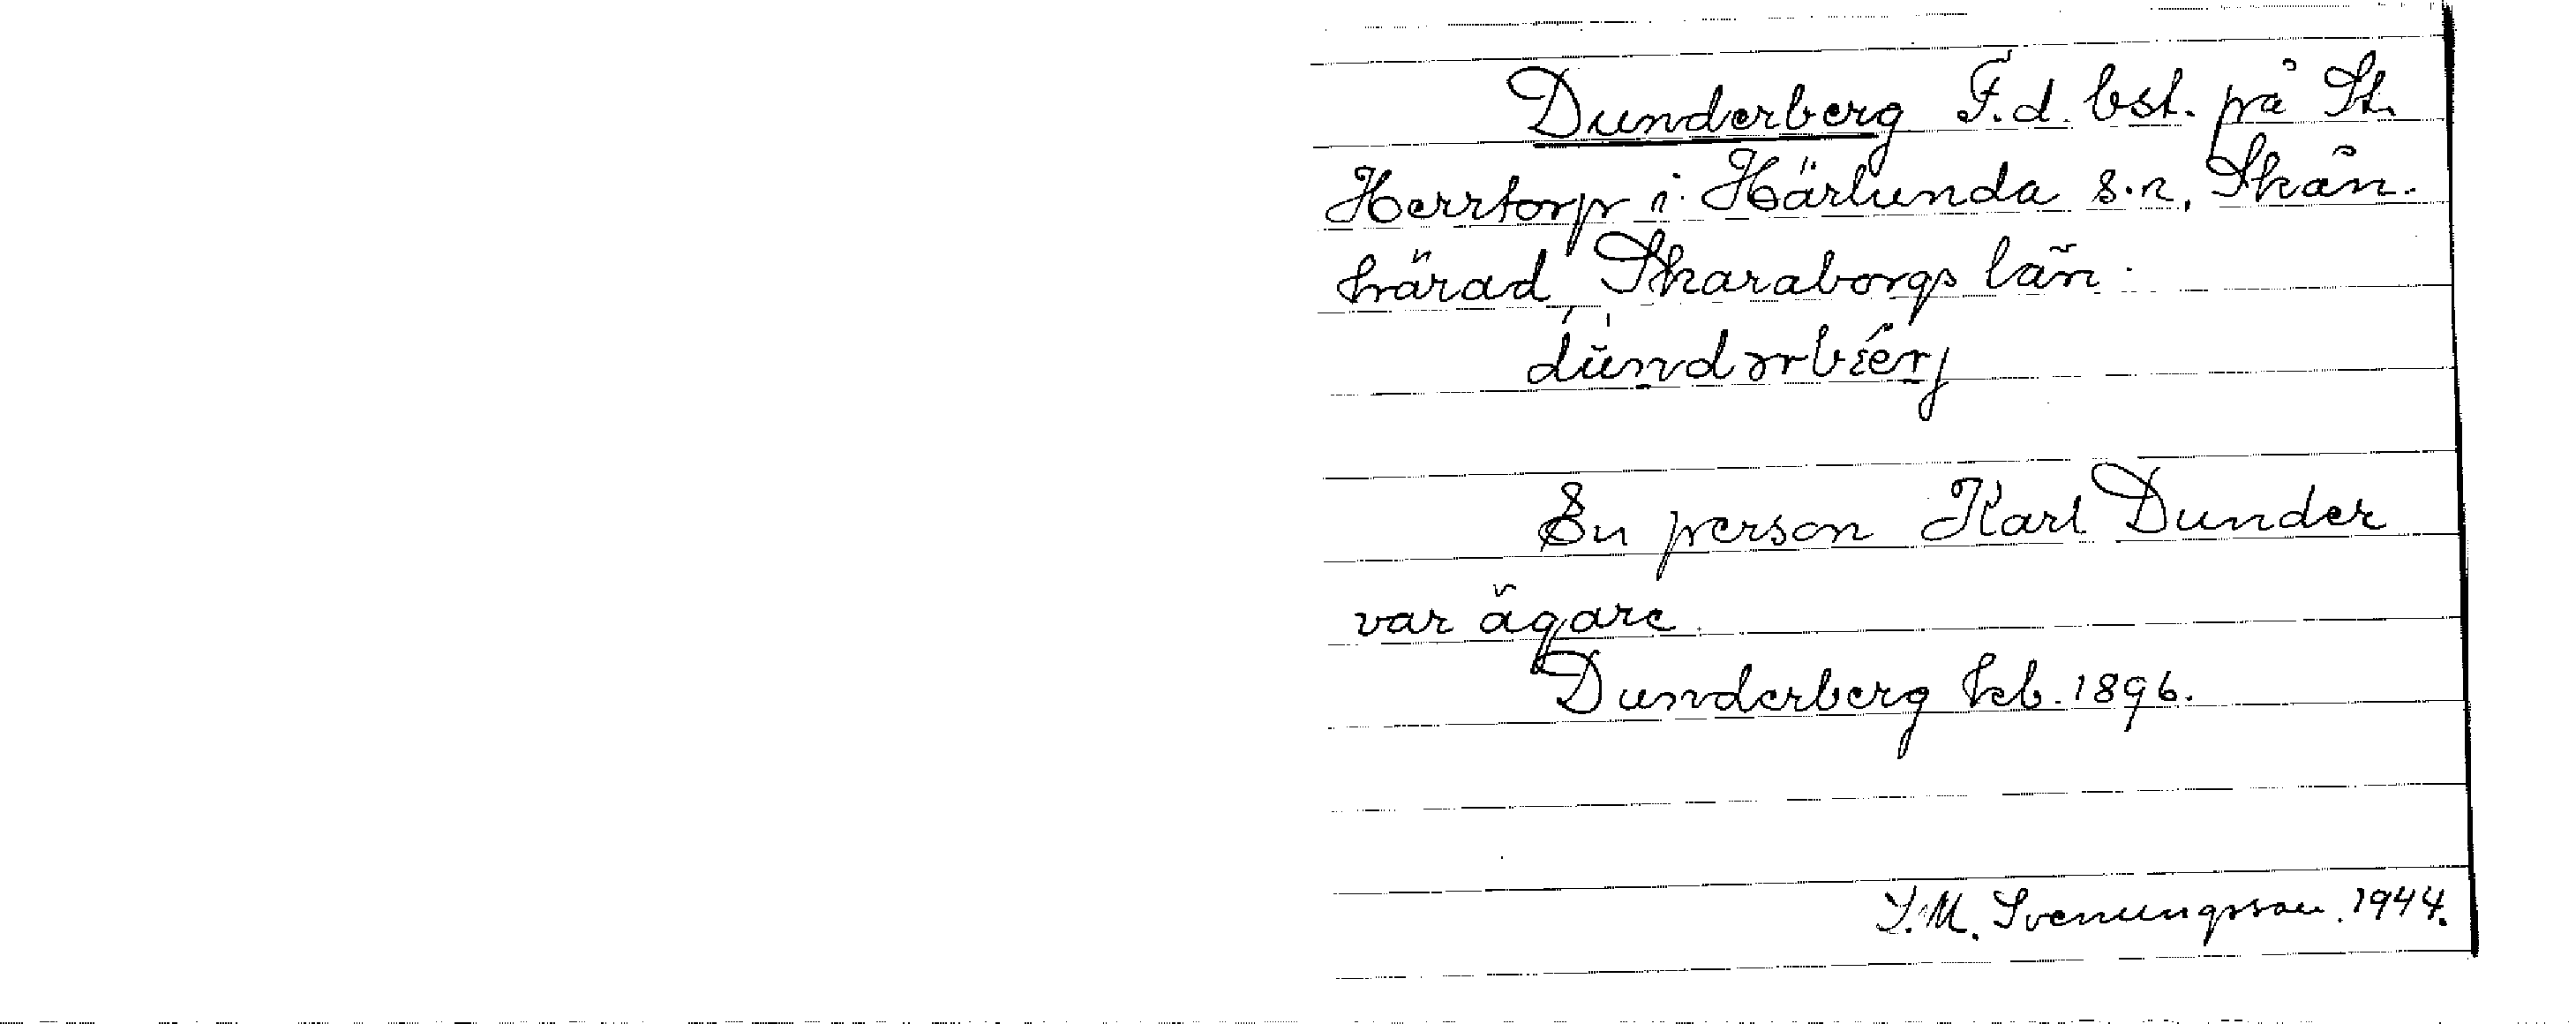 Dunderberg F.d. bst. på St.
Herrtorp i Härlunda s.n, Skån.
härad, Skaraborgs län.
En person Karl Dunder
var ägare.
Dunderberg kb. 1896.
S.M. Svenungsson. 1944.